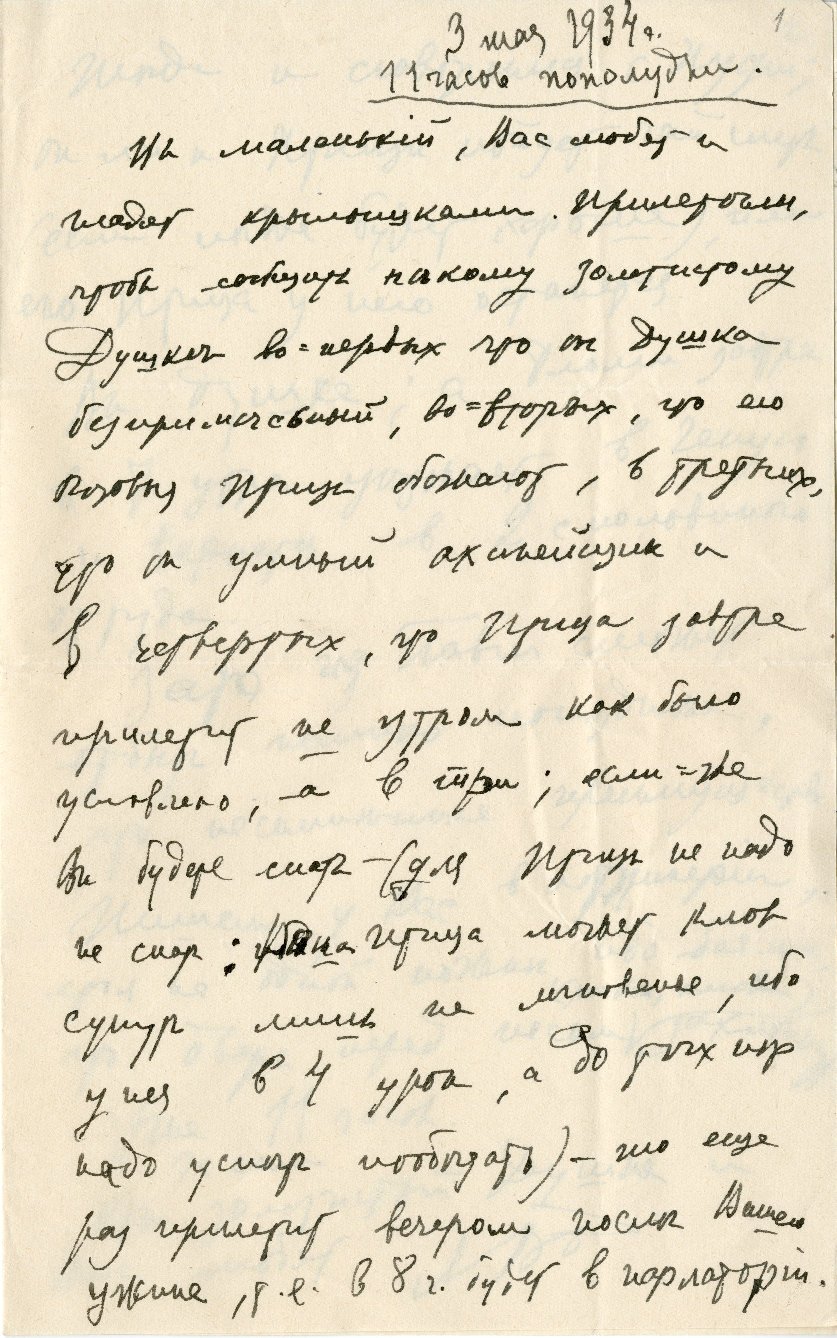 1
3 мая 1934 г.
11 часов пополудни.
маленькій, Вас любят и
гладят крылышками. Прилетали,
чтобы сообщить некому золотистому
Душкѣ во=первых что он Душка
безпримѣсный, во=вторых, что его
Птицы обожают, в третьих,
что он умный ахинейщик и
в четвертых, что Птица завтра
прилетит не утром как было
условлено, а в три; если=же
Вы будете спать – (для Птицы не надо
не спать: Птица может клюв
сунуть лишь на мгновенье, ибо
у нея в 4 урок, а до тѣх пор
надо успѣть пообѣдать) – то еще
раз прилетит вечером послѣ Вашего
ужина, т.е. в 8 ч. в парлаторіи.